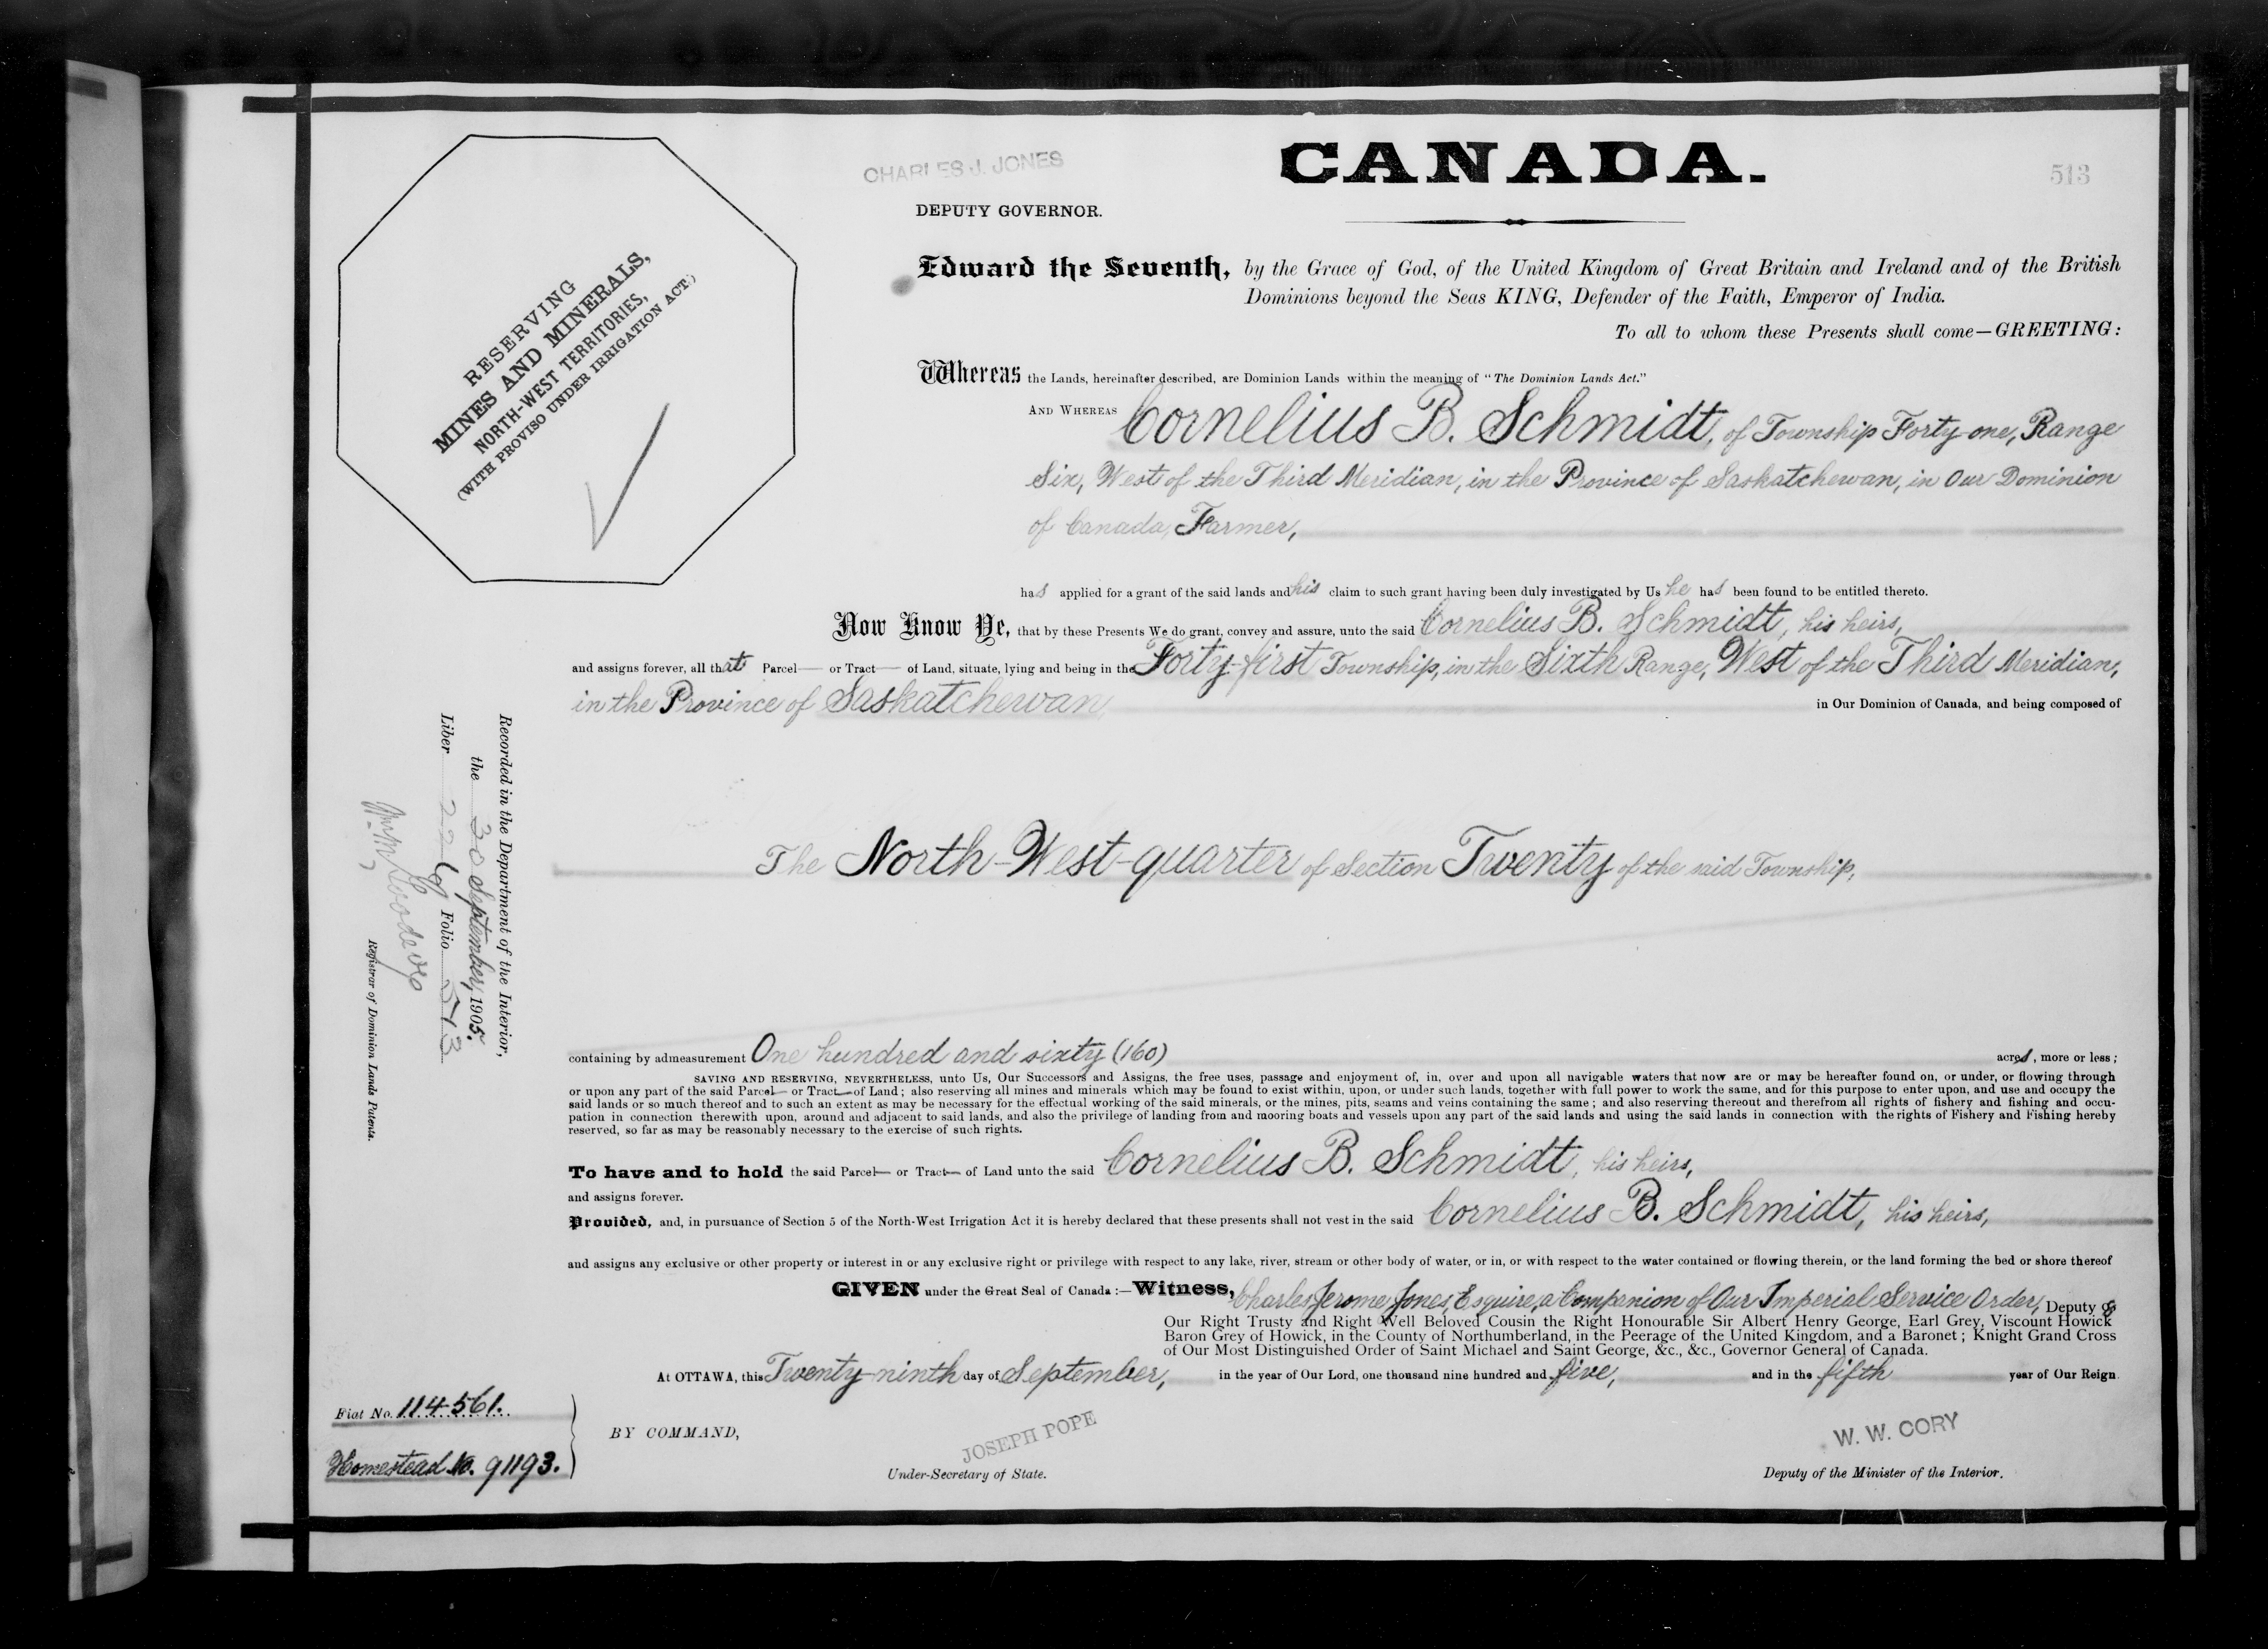 CHARLES J. JONES
CANADA.
513
DEPUTY GOVERNOR.
RESERVING
MINES AND MINERALS,
NORTH-WEST TERRITORIES,
(WITH PROVISO UNDER IRRIGATION ACT.)
Edward the Seventh, by the Grace of God, of the United Kingdom of Great Britain and Ireland and of the British
Dominions beyond the Seas KING, Defender of the Faith, Emperor of India.
To all to whom these Presents shall come—GREETING:
Whereas the Lands, hereinafter described, are Dominion Lands within the meaning of "The Dominion Lands Act."
AND WHEREAS Cornelius B. Schmidt, of Township Forty-one, Range
Six, West of the Third Meridian, in the Province of Saskatchewan, in Our Dominion
of Canada, Farmer,
has applied for a grant of the said lands and his claim to such grant having been duly investigated by Us he has been found to be entitled thereto.
Now Know Ye, that by these Presents We do grant, convey and assure, unto the said Cornelius B. Schmidt, his heirs,
and assigns forever, all that Parcel— or Tract— of Land, situate, lying and being in the Forty-first Township, in the Sixth Range, West of the Third Meridian,
in the Province of Saskatchewan, in Our Dominion of Canada, and being composed of
The North-West-quarter of Section Twenty of the said Township,
containing by admeasurement One hundred and sixty (160) acres, more or less;
SAVING AND RESERVING, NEVERTHELESS, unto Us, Our Successors and Assigns, the free uses, passage and enjoyment of, in, over and upon all navigable waters that now are or may be hereafter found on, or under, or flowing through
or upon any part of the said Parcel— or Tract— of Land; also reserving all mines and minerals which may be found to exist within, upon, or under such lands, together with full power to work the same, and for this purpose to enter upon, and use and occupy the
said lands or so much thereof and to such an extent as may be necessary for the effectual working of the said minerals, or the mines, pits, seams and veins containing the same; and also reserving thereout and therefrom all rights of fishery and fishing and occu-
pation in connection therewith upon, around and adjacent to said lands, and also the privilege of landing from and mooring boats and vessels upon any part of the said lands and using the said lands in connection with the rights of Fishery and Fishing hereby
reserved, so far as may be reasonably necessary to the exercise of such rights.
To have and to hold the said Parcel— or Tract— of Land unto the said Cornelius B. Schmidt, his heirs,
and assigns forever.
Provided, and, in pursuance of Section 5 of the North-West Irrigation Act it is hereby declared that these presents shall not vest in the said Cornelius B. Schmidt, his heirs,
and assigns any exclusive or other property or interest in or any exclusive right or privilege with respect to any lake, river, stream or other body of water, or in, or with respect to the water contained or flowing therein, or the land forming the bed or shore thereof
GIVEN under the Great Seal of Canada:—Witness, Charles Jerome Jones, Esquire, a Companion of Our Imperial Service Order, Deputy of
Our Right Trusty and Right Well Beloved Cousin the Right Honourable Sir Albert Henry George, Earl Grey, Viscount Howick
Baron Grey of Howick, in the County of Northumberland, in the Peerage of the United Kingdom, and a Baronet; Knight Grand Cross
of Our Most Distinguished Order of Saint Michael and Saint George, &c., &c., Governor General of Canada.
At OTTAWA, this Twenty-ninth day of September, in the year of Our Lord, one thousand nine hundred and five, and in the fifth year of Our Reign.
BY COMMAND,
JOSEPH POPE
Under-Secretary of State.
W. W. CORY
Deputy of the Minister of the Interior.
Fiat No. 114561.
Homestead No. 91193.
Recorded in the Department of the Interior,
the 30 September, 1905.
Liber Folio 513
Registrar of Dominion Lands Patents.